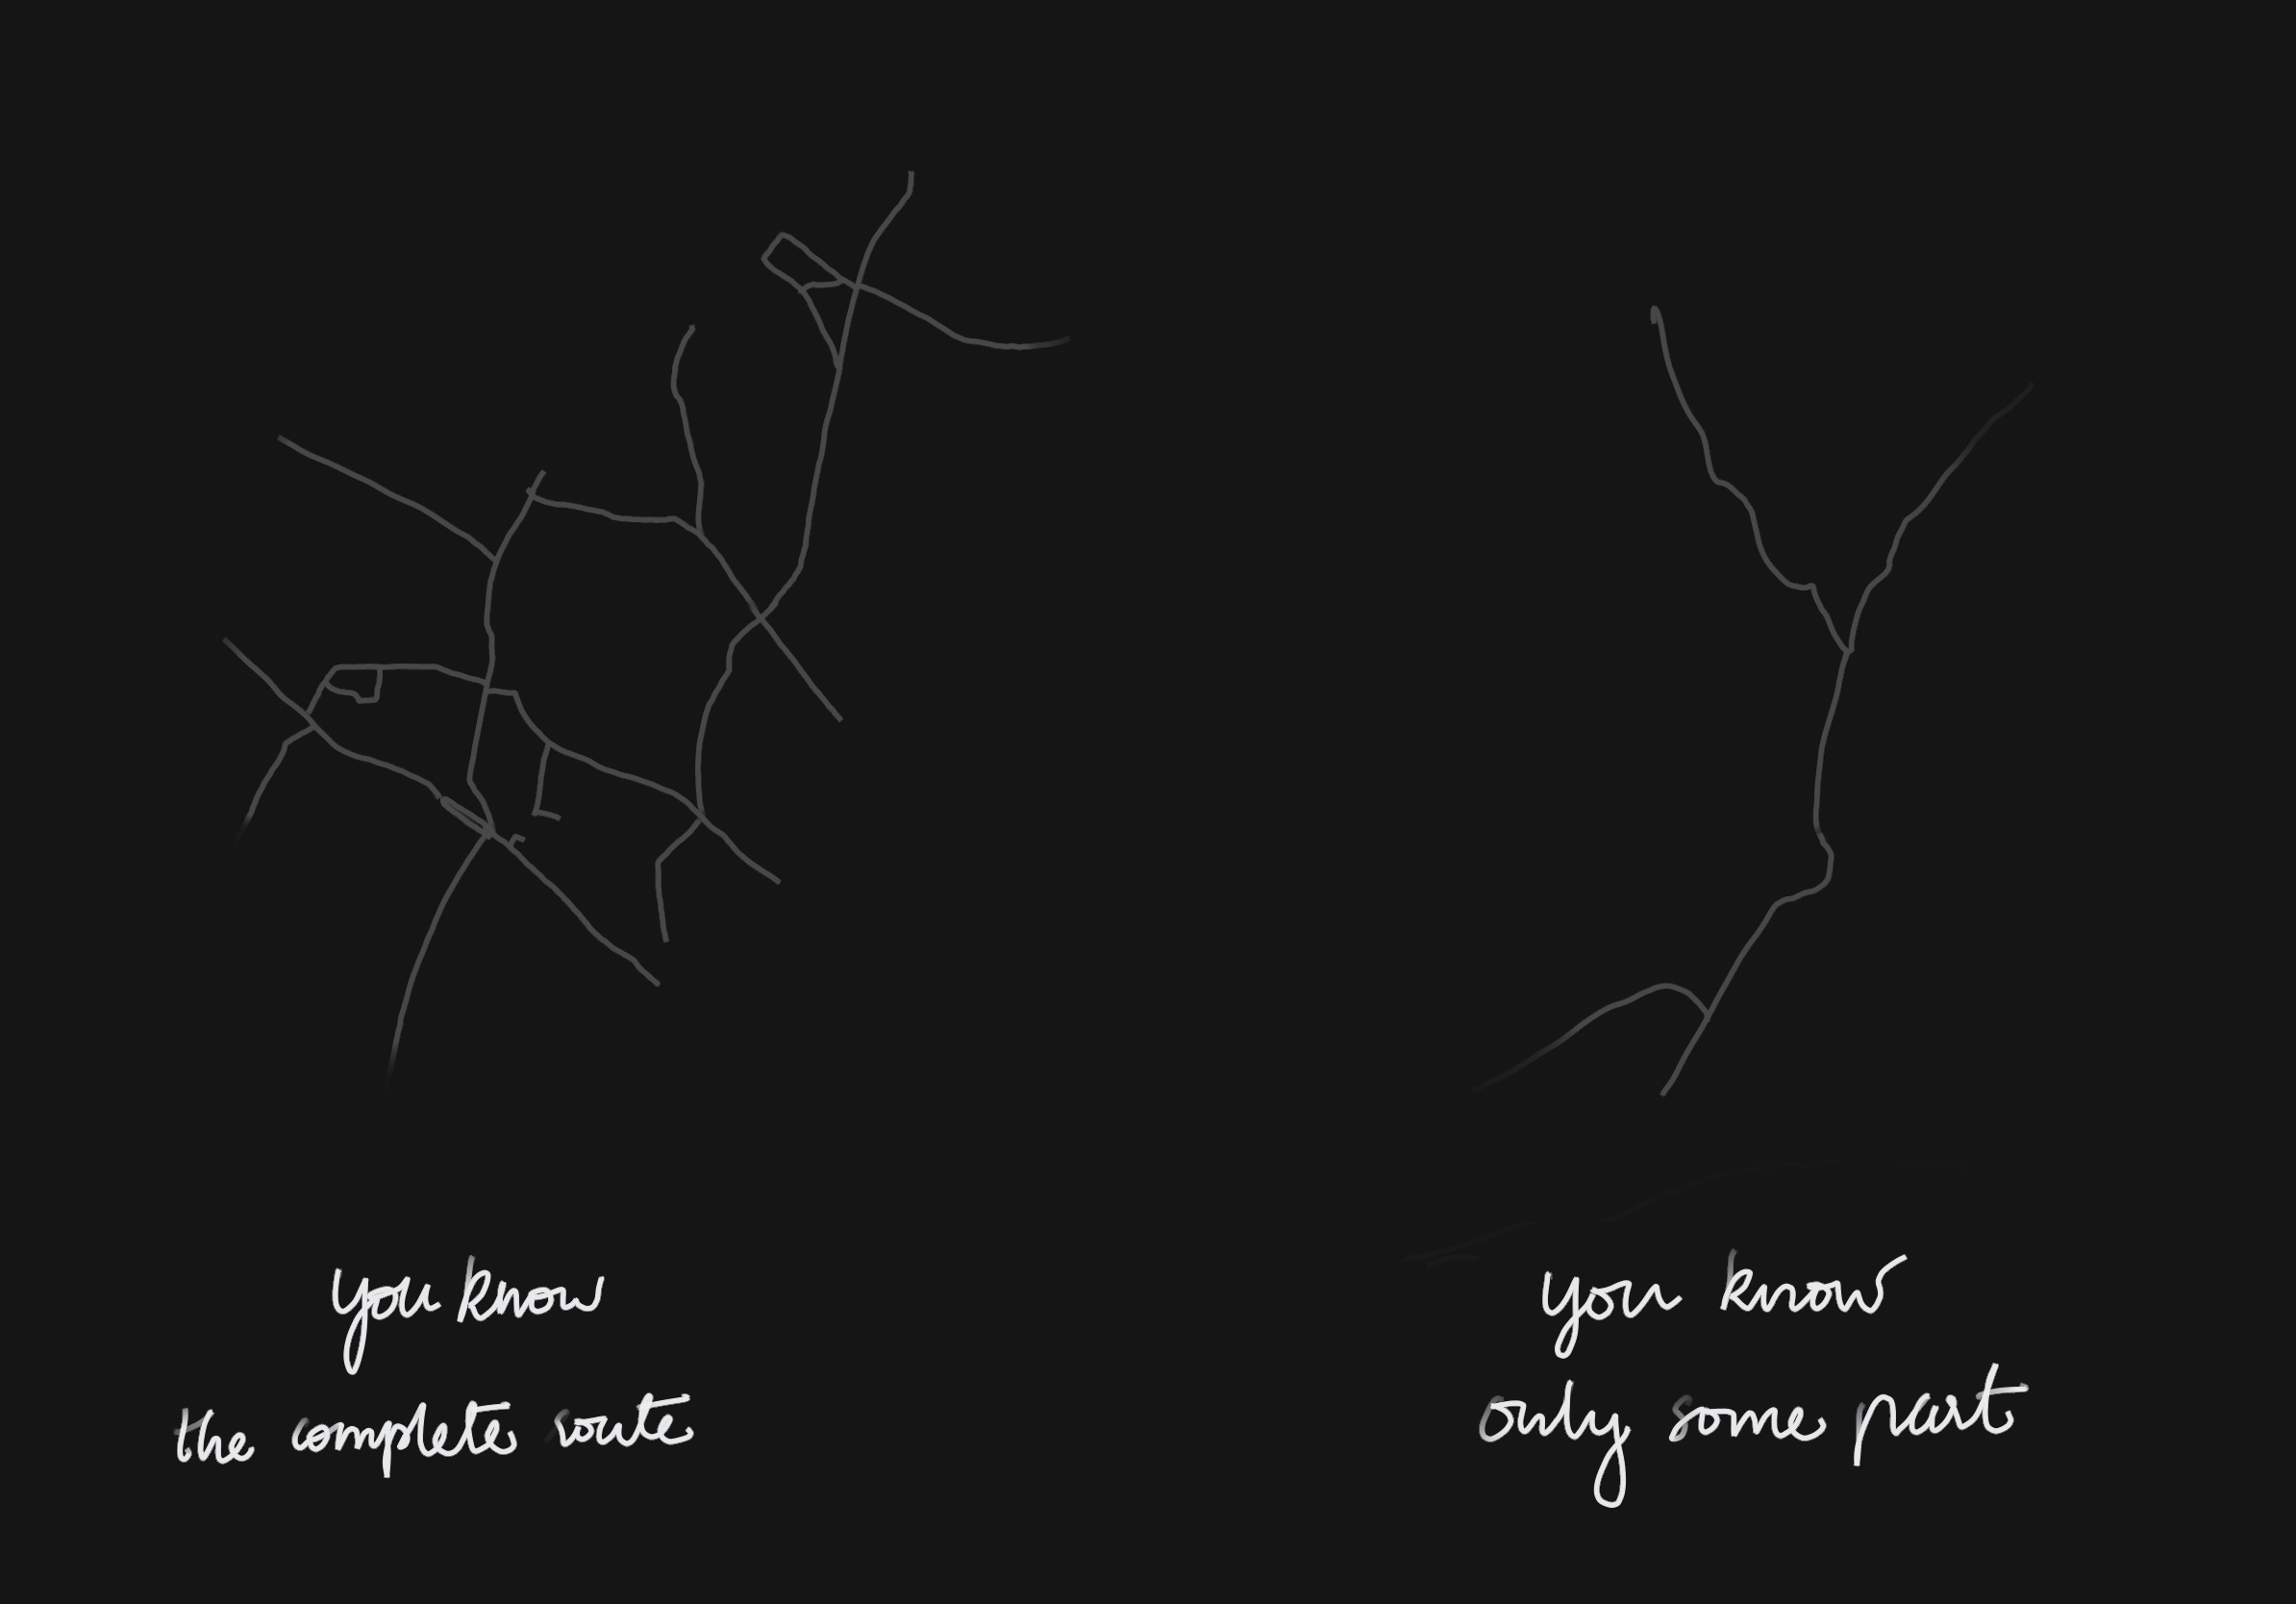 you know
the complete route
you know
only some part